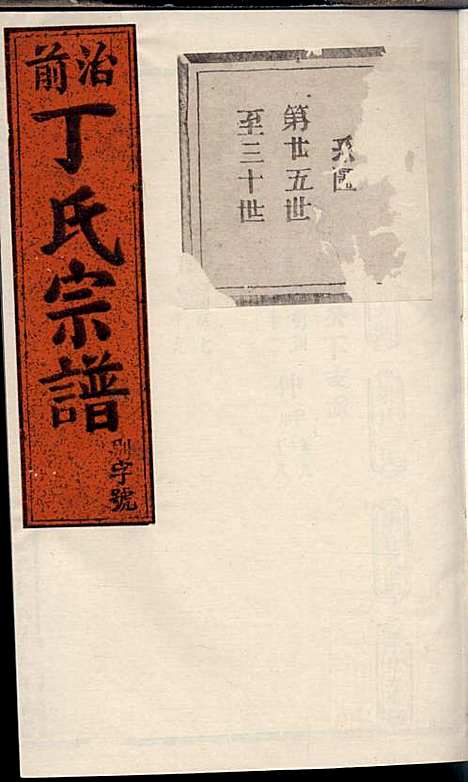 治前
丁氏宗譜
字號
第廿五世
至三十世